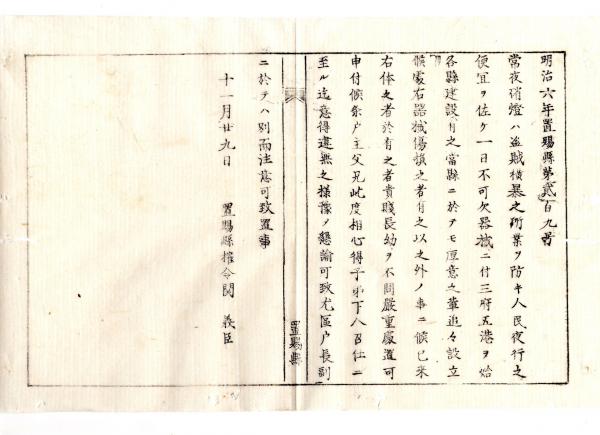 明治六年置賜縣第貳百九号
當夜消燈ハ盗賊横暴之所業ヲ防キ人民夜行之
便宜ヲ佐ケ一日不可欠器械ニ付三府五港ヲ始
各縣建設有之當縣ニ於テモ厚意之輩追々設立
候處右器械傷損之者有之以之外ノ事ニ候已来
右体之者於有之者貴賤長幼ヲ不問嚴重處置可
申付候条户主父兄此度相心得子弟下人召仕ニ
至ル迄意得違無之様篠ノ懇諭可致尤區户長副
ニ於テハ別而注意可致置事
十一月廿九日 置賜縣権令関 義臣
置賜縣